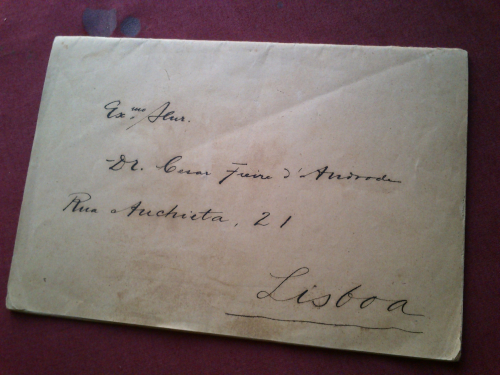 Ex.mo Snr.
Dr. Cesar Freire d'Andrade
Rua Anchieta, 21
Lisboa